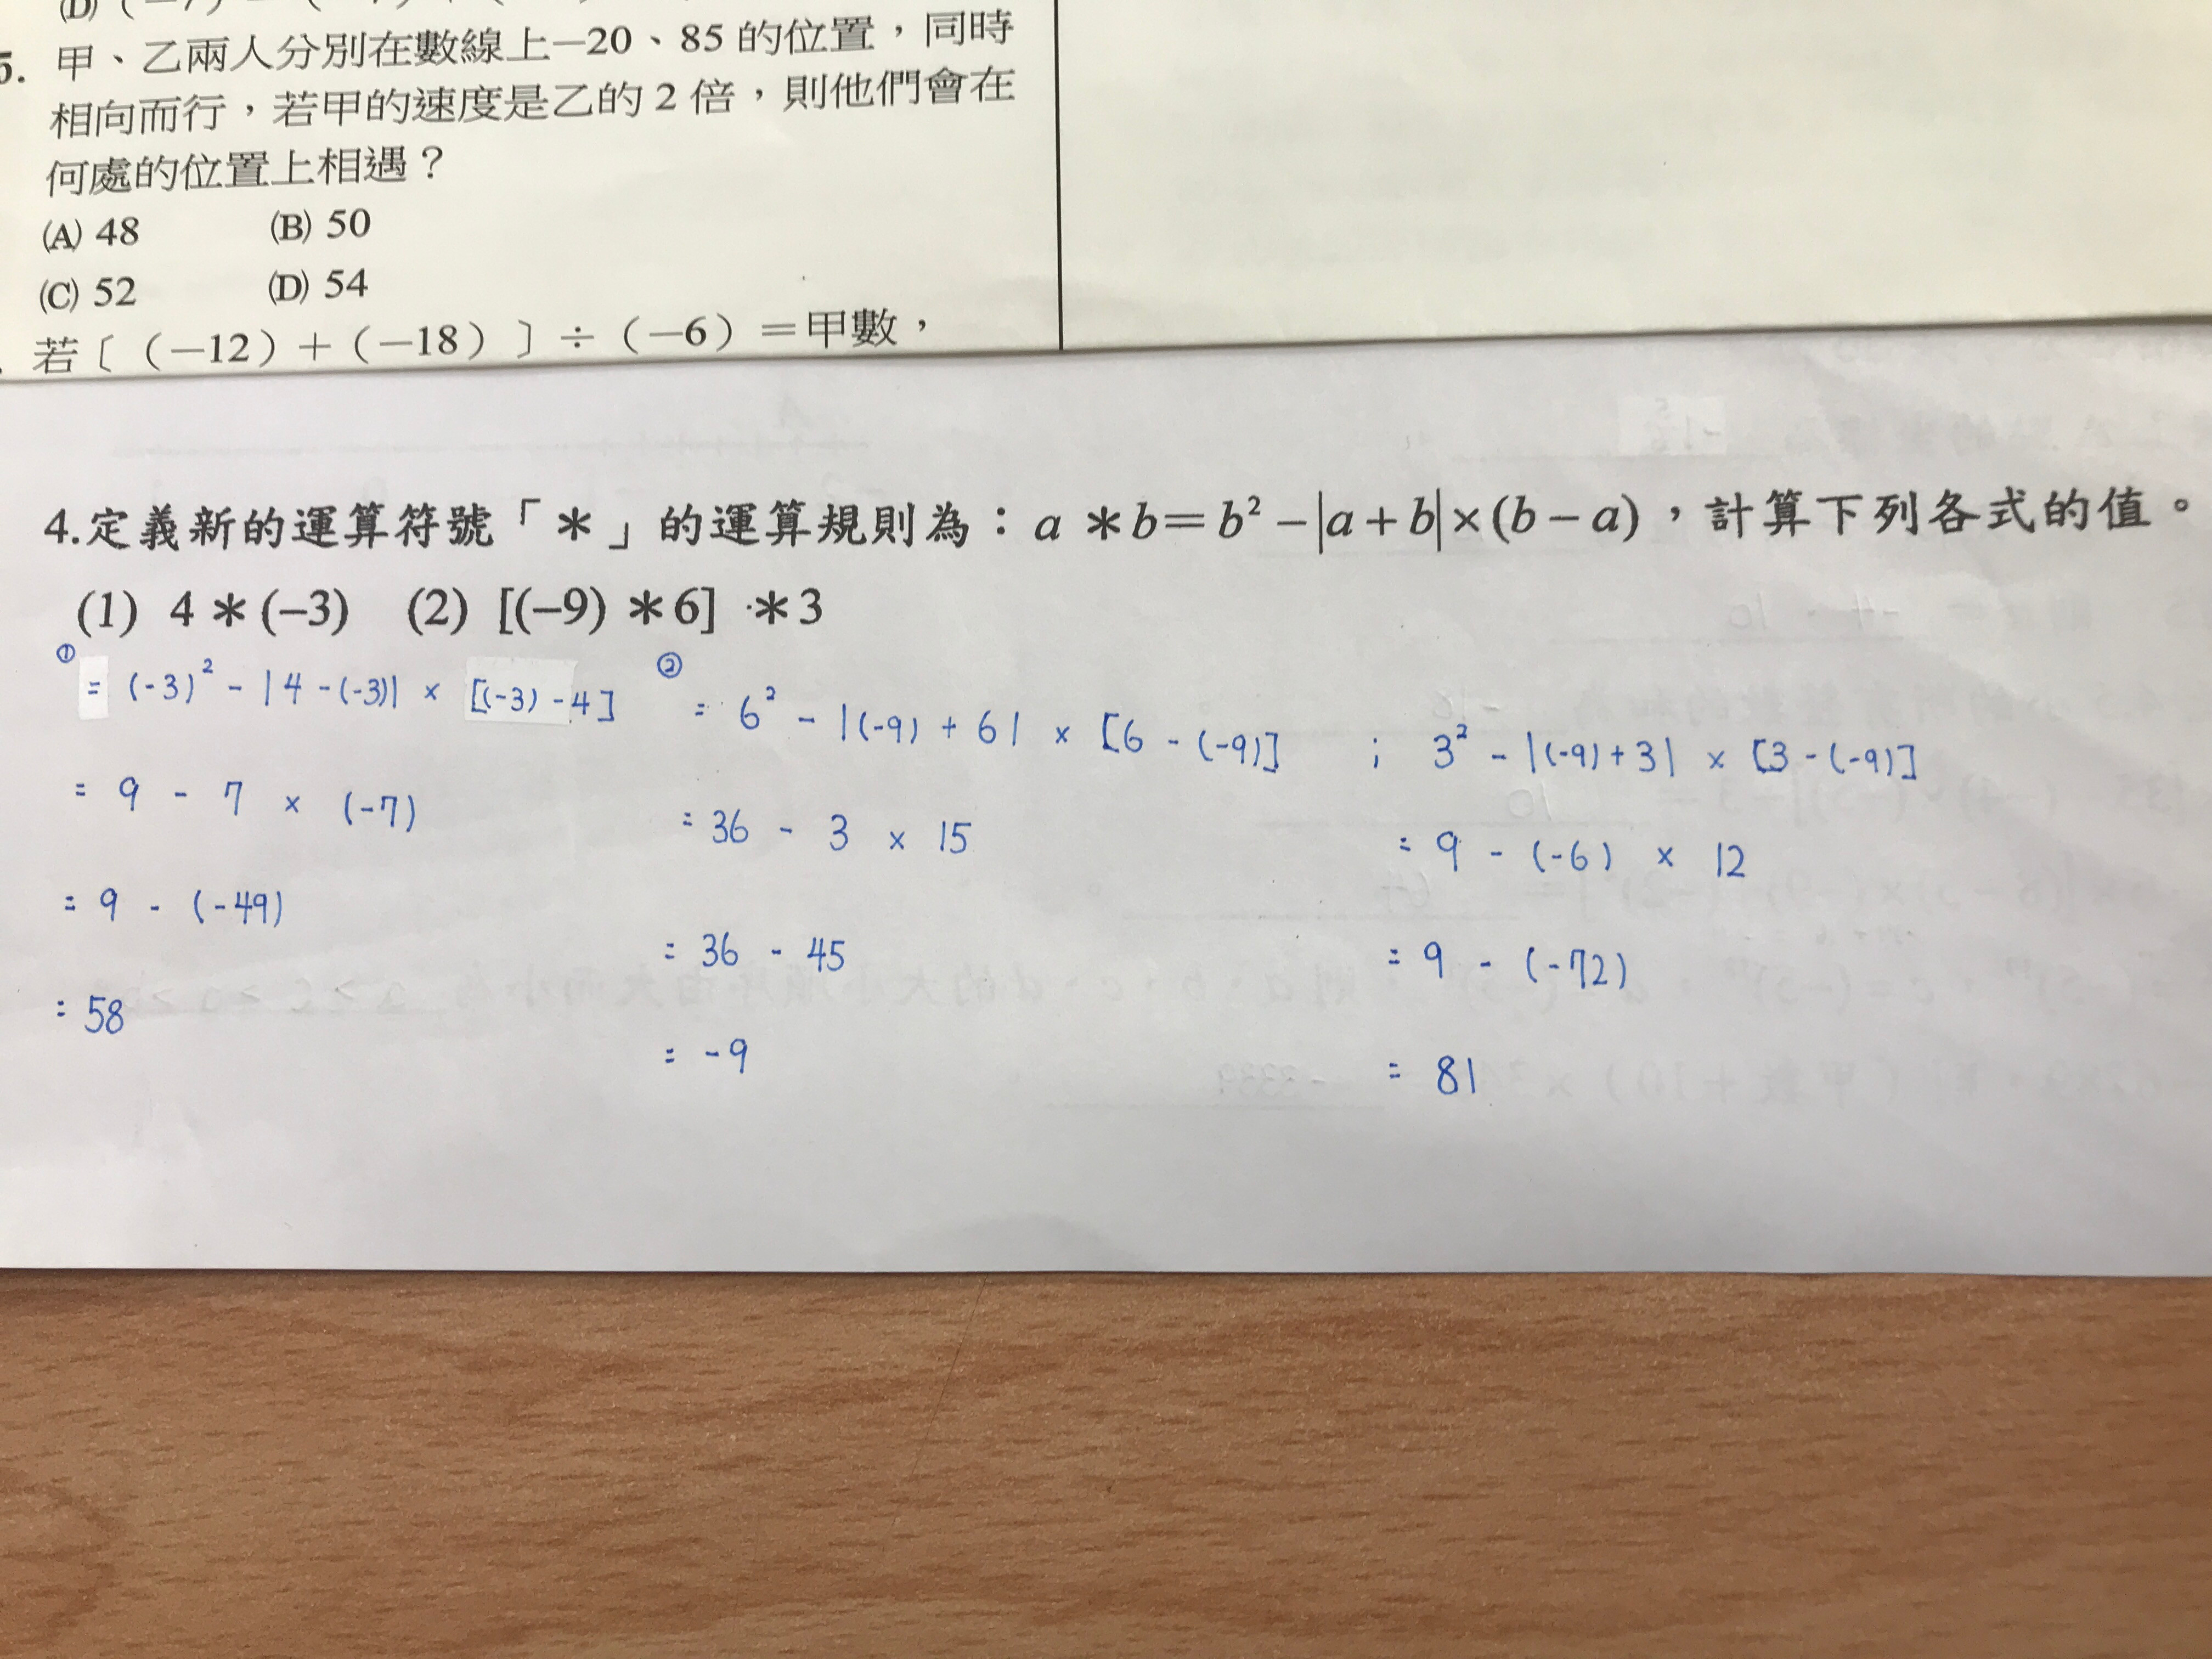 (D)
5. 甲、乙兩人分別在數線上−20、85 的位置，同時
相向而行，若甲的速度是乙的 2 倍，則他們會在
何處的位置上相遇？
(A) 48 (B) 50
(C) 52 (D) 54
若〔（−12）＋（−18）〕÷（−6）＝甲數，
4.定義新的運算符號「＊」的運算規則為：a ＊b＝b² −|a + b|×(b − a)，計算下列各式的值。
(1) 4＊(−3) (2) [(−9) ＊6] ＊3
① = (-3)² - |4 - (-3)| × [(-3) - 4]
= 9 - 7 × (-7)
= 9 - (-49)
= 58
② = 6² - |(-9) + 6| × [6 - (-9)]
= 36 - 3 × 15
= 36 - 45
= -9
; 3² - |(-9) + 3| × [3 - (-9)]
= 9 - (-6) × 12
= 9 - (-72)
= 81